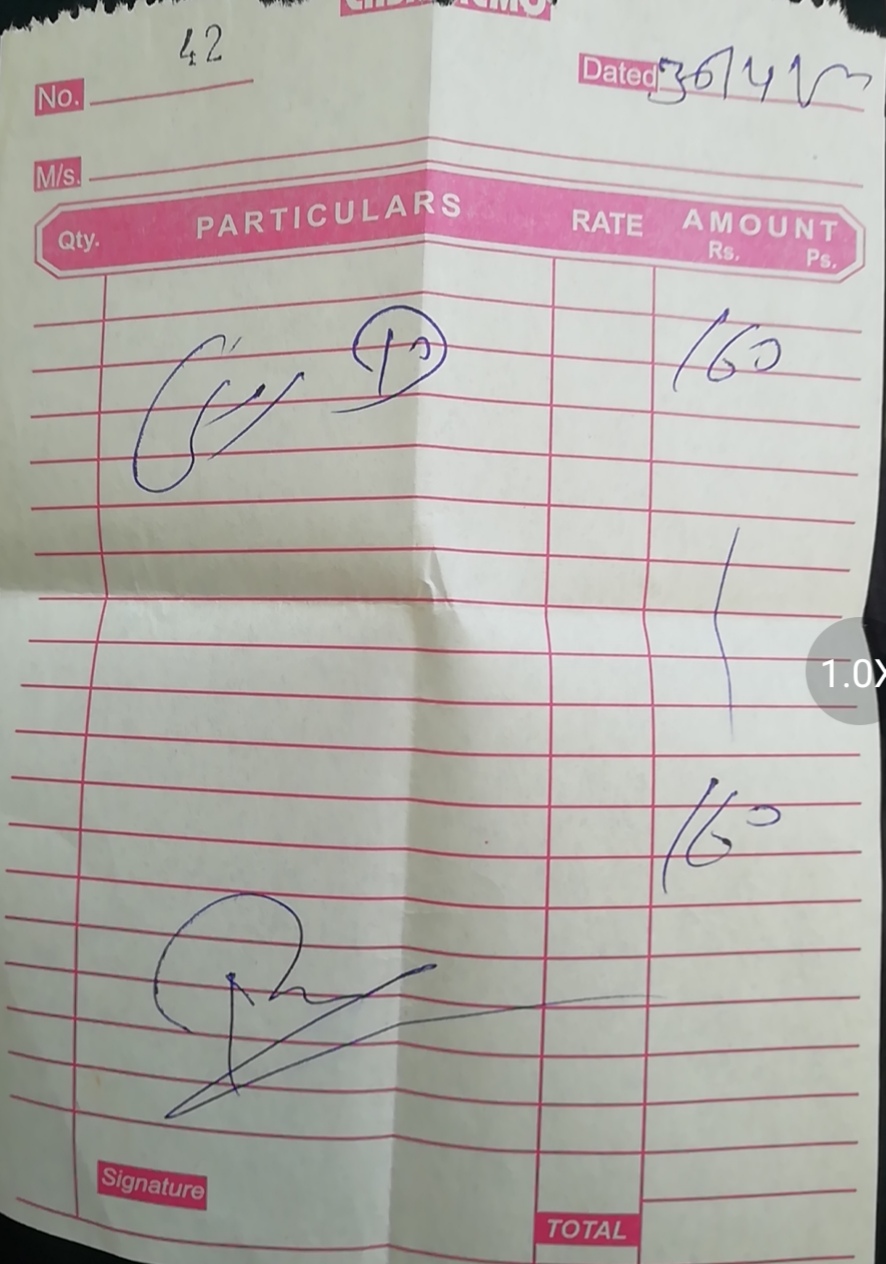 CASH MEMO
No. 42
Dated 30/4
M/s.
Qty. PARTICULARS RATE AMOUNT
Rs. Ps.
10 160
160
Signature
TOTAL
1.0X